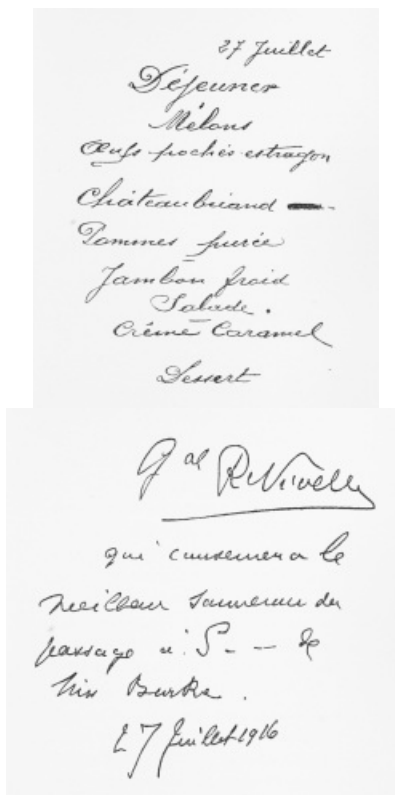 27 Juillet
Déjeuner
Mélons
Œufs pochés estragon
Châteaubriand
Pommes purée
Jambon froid
Salade.
Crème Caramel
Dessert
Gal R. Nivelle
qui conservera le
meilleur souvenir du
passage à S. — de
Miss Burke.
27 Juillet 1916